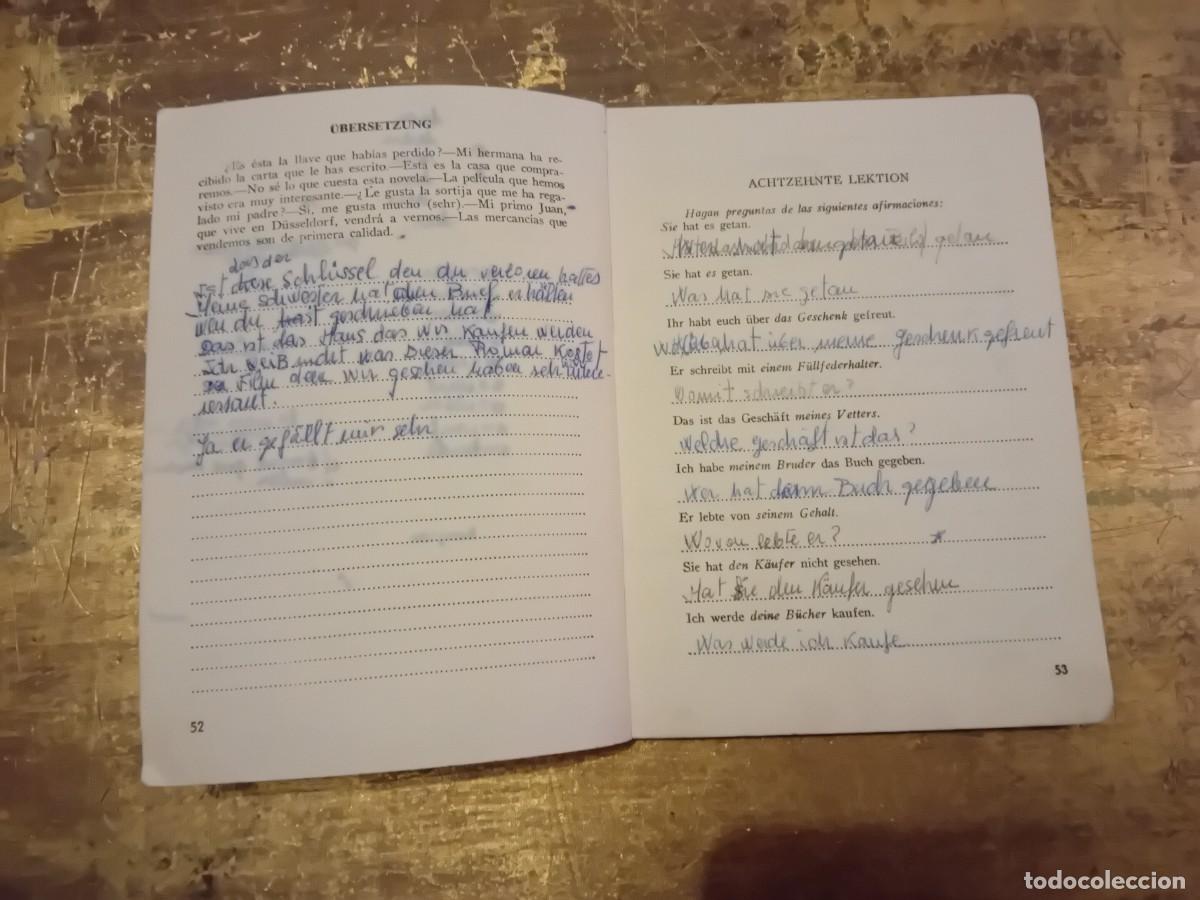 ÜBERSETZUNG
¿Es ésta la llave que habías perdido?—Mi hermana ha re-
cibido la carta que le has escrito.—Esta es la casa que compra-
remos.—No sé lo que cuesta esta novela.—La película que hemos
visto era muy interesante.—¿Le gusta la sortija que me ha rega-
lado mi padre?—Si, me gusta mucho (sehr).—Mi primo Juan,
que vive en Düsseldorf, vendrá a vernos.—Las mercancías que
vendemos son de primera calidad.
das der
Ist diese Schlüssel den du verloren hattes
Meine Schwester hat den Brief erhalten
den du hast geschrieben hat
Das ist das Haus das wir Kaufen werden
Ich weiß nicht was Dieser Roman Kostet
Film den wir gesehen haben sehr inte-
ressant.
Ja er gefällt mir sehr
52
ACHTZEHNTE LEKTION
Hagan preguntas de las siguientes afirmaciones:
Sie hat es getan.
getan
Sie hat es getan.
Was hat sie getan
Ihr habt euch über das Geschenk gefreut.
hat über meine geschenk gefreut
Er schreibt mit einem Füllfederhalter.
Womit schreibt er?
Das ist das Geschäft meines Vetters.
Welche geschäft ist das?
Ich habe meinem Bruder das Buch gegeben.
Wer hat dem Buch gegeben
Er lebte von seinem Gehalt.
Wovon lebte er?
Sie hat den Käufer nicht gesehen.
Hat Sie den Käufer gesehen
Ich werde deine Bücher kaufen.
Was werde ich Kaufe
53
todocoleccion